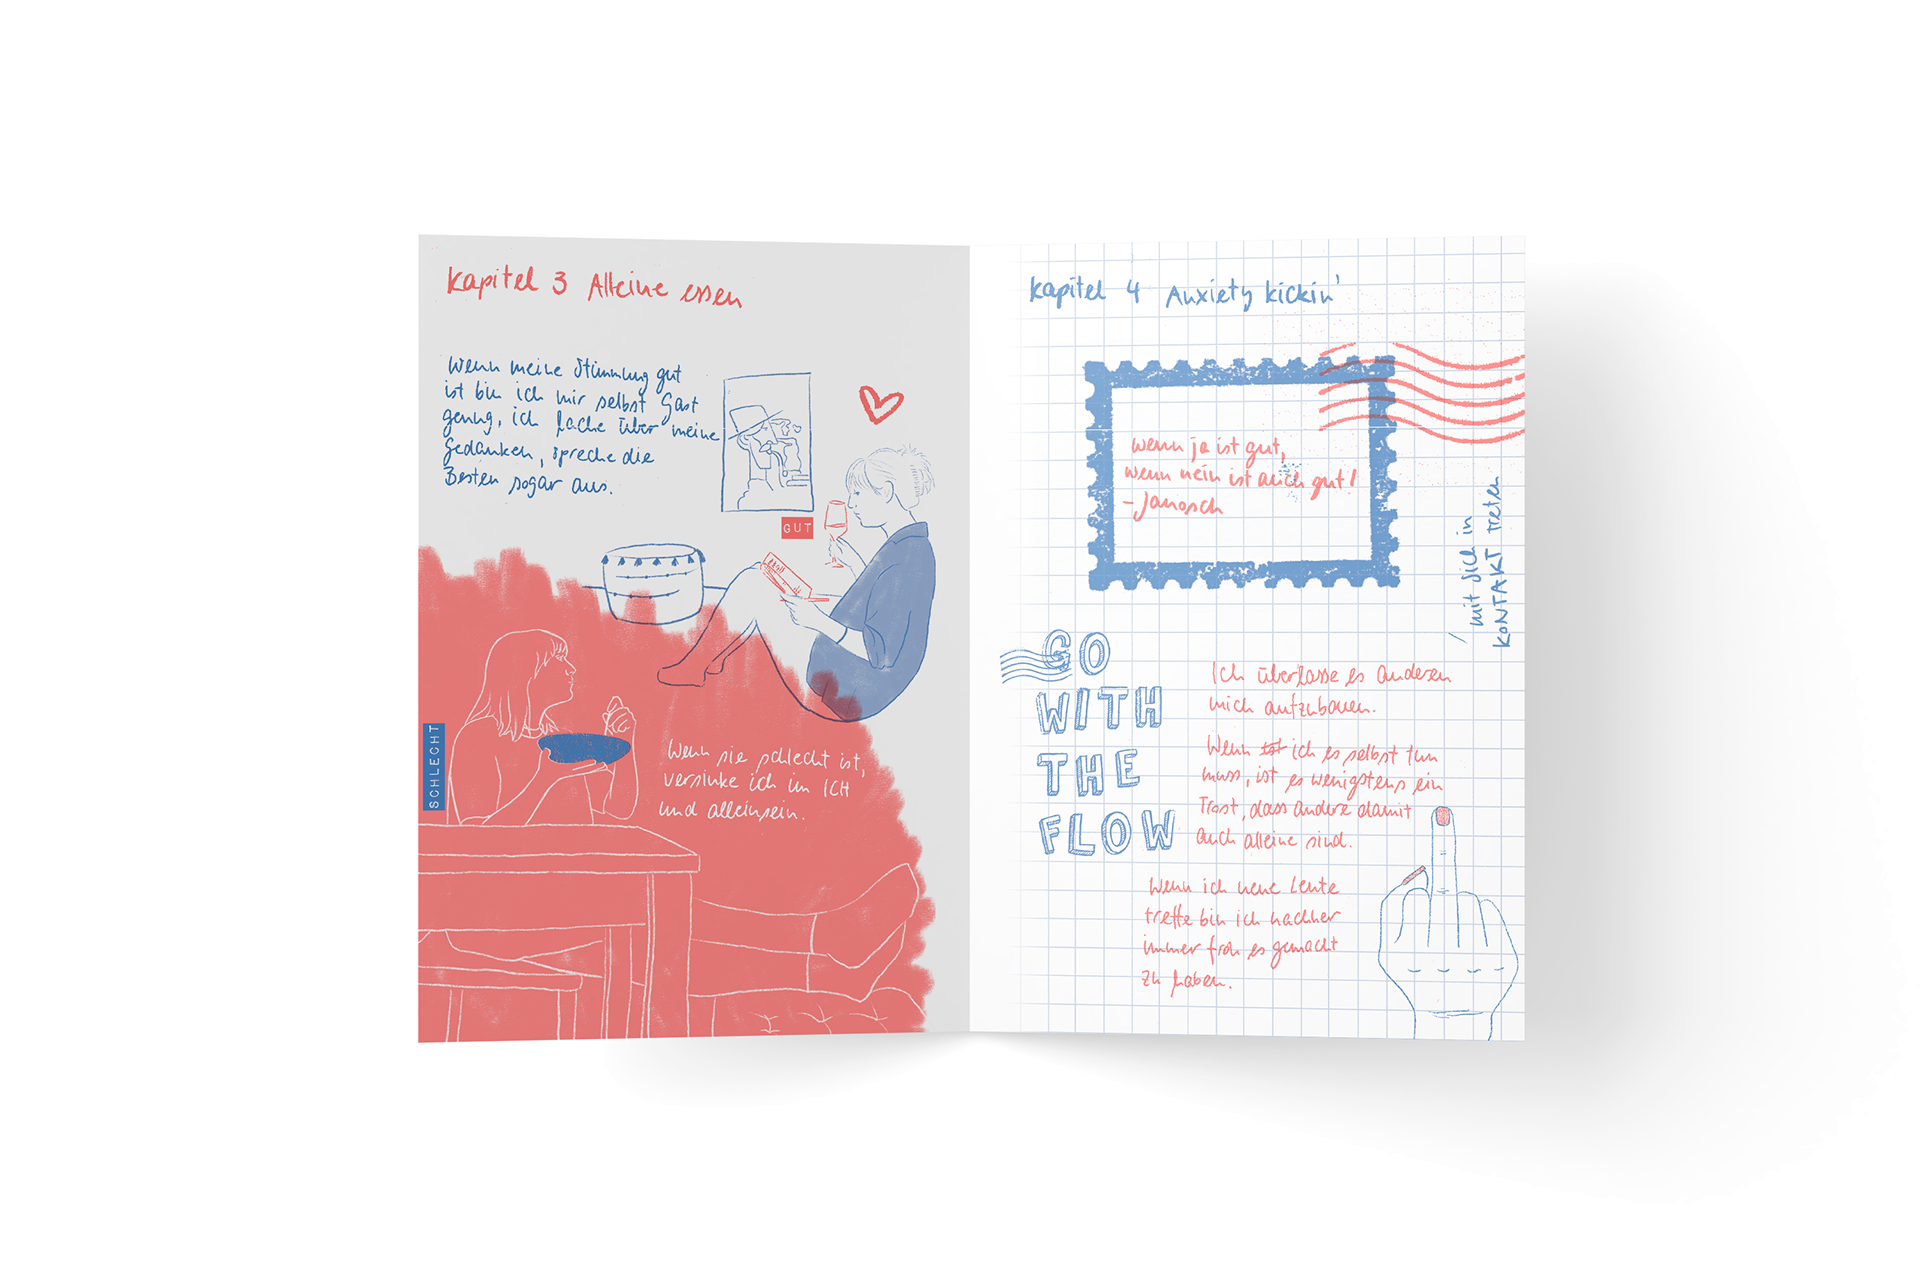 Kapitel 3 Alleine essen
Wenn meine Stimmung gut
ist bin ich mir selbst Gast
genug, ich lache über meine
Gedanken, spreche die
Besten sogar aus.
GUT
SCHLECHT
Wenn sie schlecht ist,
versinke ich im ICH
und alleinsein.
Kapitel 4 Anxiety kickin'
wenn ja ist gut,
wenn nein ist auch gut!
-Janosch
mit sich in
KONTAKT treten
GO
WITH
THE
FLOW
Ich überlasse es anderen
mich aufzubauen.
Wenn ist ich es selbst tun
muss, ist es wenigstens ein
Trost, dass andere damit
auch alleine sind.
Wenn ich neue Leute
treffe bin ich nachher
immer froh es gemacht
zu haben.